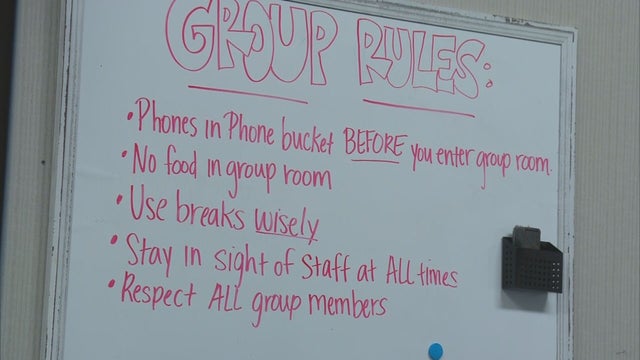 GROUP RULES:
• Phones in Phone bucket BEFORE you enter group room.
• No food in group room
• Use breaks wisely
• Stay in sight of Staff at ALL times
• Respect ALL group members